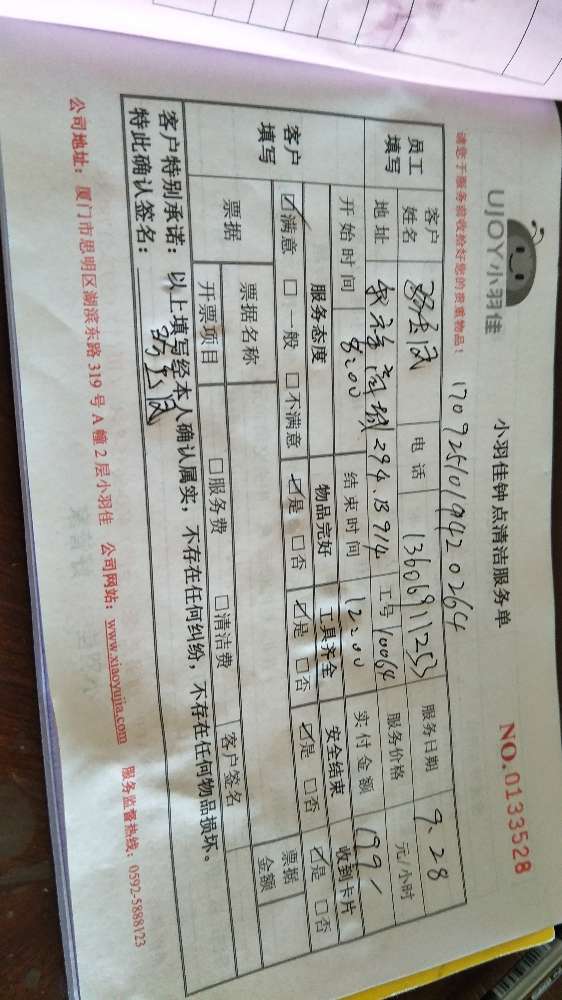 UJOY小羽佳
小羽佳钟点清洁服务单
NO.0133528
请您于服务前收检好您的贵重物品!
1709251019420264
员工填写
客户姓名
电话 13606911253
服务日期 9.28
地址 294.B914
工号 10064
服务价格 元/小时
开始时间 8:00
结束时间 12:00
实付金额 199/
客户填写
服务态度 物品完好 工具齐全 安全结束 收到卡片
☑满意 □一般 □不满意 ☑是 □否 ☑是 □否 ☑是 □否 ☑是 □否
票据
票据名称
票据金额
开票项目 □服务费 □清洁费 客户签名
客户特别承诺:以上填写经本人确认属实,不存在任何纠纷,不存在任何物品损坏。
特此确认签名:
公司地址:厦门市思明区湖滨东路319号A幢2层小羽佳 公司网站:www.xiaoyujia.com 服务监督热线:0592-5888123